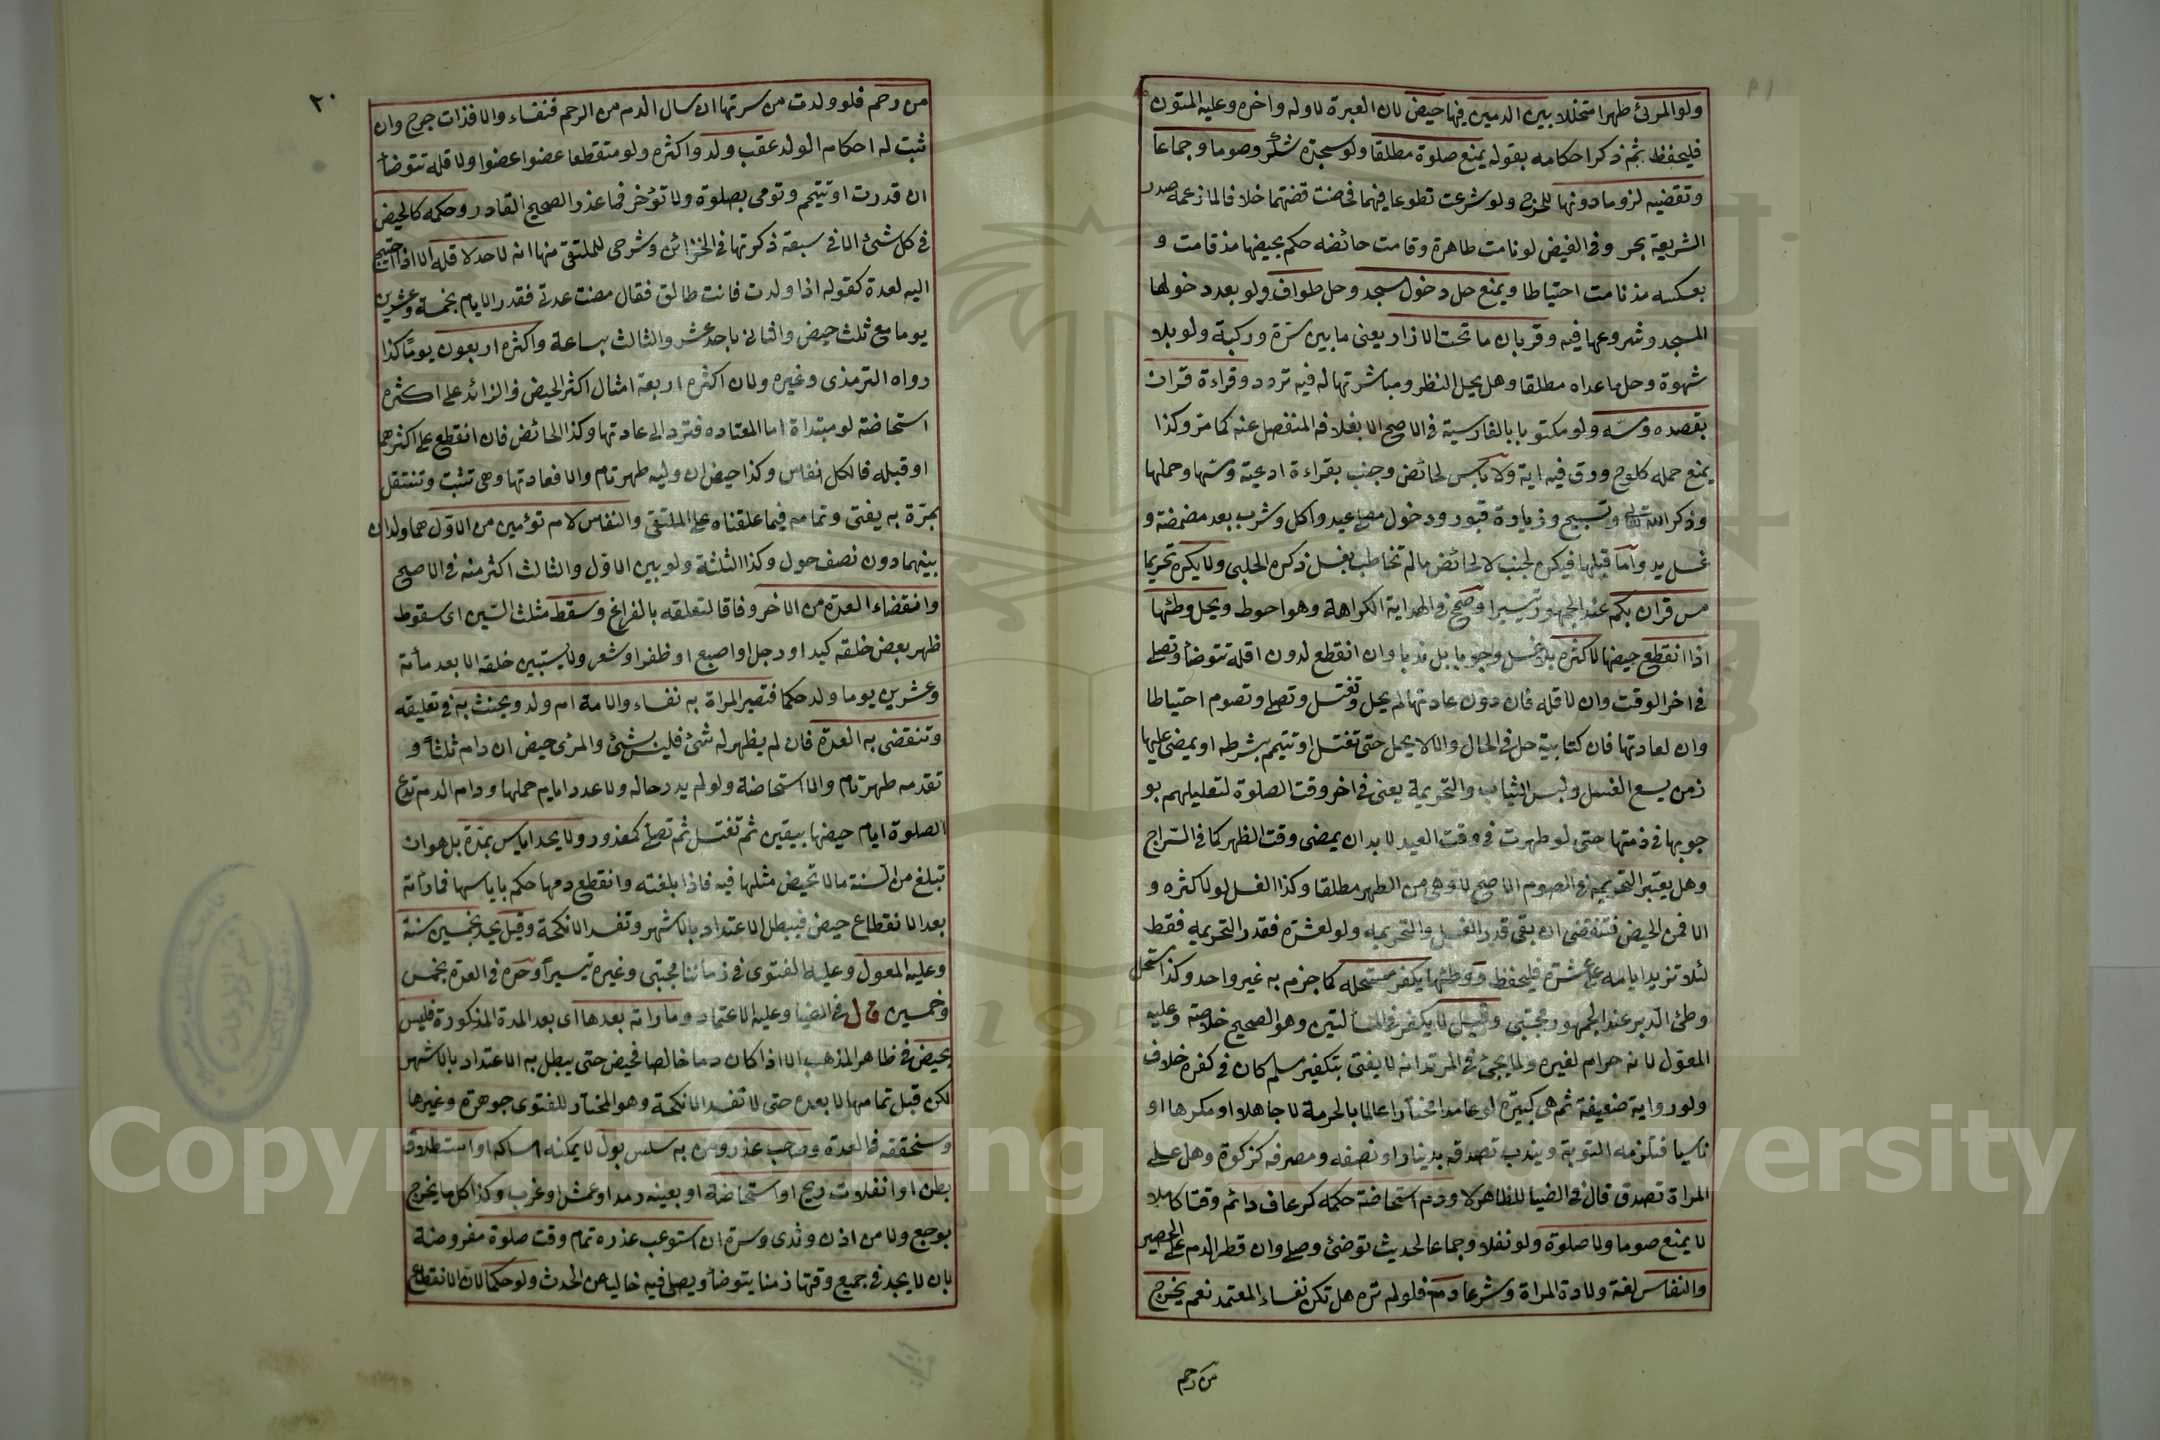 ولو المرئى طهرا متخللا بين الدمين فيها حيض لان العبرة لاوله واخره وعليه المتون
فليحفظ ثم ذكر احكامه بقوله يمنع صلوة مطلقا ولو سجدة شكر وصوما وجماعا
وتقضيه لزوما دونها للحرج ولو شرعت تطوعا فيهما فحاضت قضتهما خلافا لما زعمه صدر
الشريعة بحر وفى الفيض لو نامت طاهرة وقامت حائضه حكم بحيضها مذ قامت و
بعكسه مذ نامت احتياطا ويمنع حل دخول مسجد وحل طواف ولو بعد دخولها
المسجد وشروعها فيه وقربان ما تحت الازار يعنى ما بين سرة وركبة ولو بلا
شهوة وحل ما عداه مطلقا وهل يحل النظر ومباشرتها له فيه تردد وقراءة قران
بقصده ومسه ولو مكتوبا بالفارسية فى الاصح الا بغلافه المنفصل عنه كما مر وكذا
يمنع حمله كلوح وورق فيه اية ولا باس لحائض وجنب بقراءة ادعية ومسها وحملها
وذكر الله تعالى وتسبيح وزيارة قبور ودخول مصلى عيد واكل وشرب بعد مضمضة و
غسل يد واما قبلها فيكره لجنب لا لحائض ما لم تخاطب بغسل ذكره الحلبى ولا يكره تحريما
مس قران بكم عند الجمهور تيسيرا وصحح فى الهداية الكراهة وهو احوط ويحل وطئها
اذا انقطع حيضها لاكثره بلا غسل وجوبا بل ندبا وان انقطع لدون اقله تتوضأ وتصلى
فى اخر الوقت وان لاقله فان دون عادتها لم يحل وتغتسل وتصلى وتصوم احتياطا
وان لعادتها فان كتابية حل فى الحال والا لا يحل حتى تغتسل او تتيمم بشرطه او يمضى عليها
زمن يسع الغسل ولبس الثياب والتحريمة يعنى فى اخر وقت الصلوة لتعليلهم بو
جوبها فى ذمتها حتى لو طهرت فى وقت العيد لا بد ان يمضى وقت الظهر كما فى السراج
وهل يعتبر التحريمة فى الصوم الاصح لا وهى من الطهر مطلقا وكذا الغسل لو لاكثره و
الا فمن الحيض فتقضى ان بقى قدر الغسل والتحريمه ولو لعشرة فقدر التحريمه فقط
لئلا تزيد ايامه على عشرة فليحفظ ووطئها يكفر مستحله كما جزم به غير واحد وكذا مستحل
وطئ الدبر عند الجمهور مجتبى وقيل لا يكفر فى المسألتين وهو الصحيح خلاصه وعليه
المعول لانه حرام لغيره ولما يجئ فى المرتد انه لا يفتى بتكفير مسلم كان فى كفره خلاف
ولو رواية ضعيفة ثم هى كبيرة لو عامدا مختارا عالما بالحرمة لا جاهلا او مكرها او
ناسيا فتلزمه التوبة ويندب تصدقه بدينار او نصفه ومصرفه كزكوة وهل على
المراة تصدق قال فى الضيا الظاهر لا ودم استحاضة حكمه كرعاف دائم وقتا كاملا
لا يمنع صوما ولا صلوة ولو نفلا وجماعا لحديث توضئ وصلى وان قطر الدم على الحصير
والنفاس لغة ولادة المراة وشرعا دم فلو لم تره هل تكن نفساء المعتمد نعم يخرج
من رحم
٢٠
من رحم فلو ولدت من سرتها ان سال الدم من الرحم فنفساء والا فذات جرح وان
ثبت له احكام الولد عقب ولد واكثره ولو متقطعا عضوا عضوا ولا قله تتوضأ
ان قدرت او تتيمم وتومى بصلوة ولا تؤخر فما عذر الصحيح القادر وحكمه كالحيض
فى كل شئ الا فى سبعة ذكرتها فى الخزائن وشرحى للملتقى منها انه لا حد لاقله الا اذا احتيج
اليه لعدة كقوله اذا ولدت فانت طالق فقال مضت عدتى فقدر الامام بخمسة وعشرين
يوما مع ثلث حيض والثانى باحد عشر والثالث بساعة واكثره اربعون يوما كذا
رواه الترمذى وغيره ولان اكثره اربعة امثال اكثر الحيض والزائد على اكثره
استحاضة لو مبتداة اما المعتاده فترد الى عادتها وكذا الحائض فان انقطع على اكثرهما
او قبله فالكل نفاس وكذا حيض ان وليه طهر تام والا فعادتها وهى تثبت وتنتقل
بمرة به يفتى وتمامه فيما علقناه على الملتقى والنفاس لام تؤمين من الاول هما ولدان
بينهما دون نصف حول وكذا الثلثة ولو بين الاول والثالث اكثر منه فى الاصح
وانقضاء العدة من الاخر وفاقا لتعلقه بالفراغ وسقط مثلث السين اى سقوط
ظهر بعض خلقه كيد او رجل او اصبع او ظفر او شعر ولا يستبين خلقه الا بعد مأئة
وعشرين يوما ولد حكما فتصير المراة به نفساء والامة ام ولد ويحنث به فى تعليقه
وتنقضى به العدة فان لم يظهر له شئ فليس بشئ والمرئى حيض ان دام ثلثا و
تقدمه طهر تام والا استحاضة ولو لم يدر حاله ولا عدد ايام حملها ودام الدم تدع
الصلوة ايام حيضها بيقين ثم تغتسل ثم تصلى كمعذور ولا يحد اياس بمدة بل هو ان
تبلغ من السنة ما لا تحيض مثلها فيه فاذا بلغته وانقطع دمها حكم باياسها فما رأته
بعد الانقطاع حيض فيبطل الاعتداد بالاشهر وتفسد الانكحة وقيل يحد بخمسين سنة
وعليه المعول وعليه الفتوى فى زماننا مجتبى وغيره تيسيرا وحده فى العدة بخمس
وخمسين قال فى الضيا وعليه الاعتماد وما راته بعدها اى بعد المدة المذكورة فليس
بحيض فى ظاهر المذهب الا اذا كان دما خالصا فحيض حتى يبطل به الاعتداد بالاشهر
لكن قبل تمامها لا بعده حتى لا تفسد الانكحة وهو المختار للفتوى جوهرة وغيرها
وسنحققه فى العدة وصاحب عذر ومن به سلس بول لا يمكنه امساكه او استطلاق
بطن او انفلات ريح او استحاضة او بعينه رمد او عمش او غرب وكذا كل ما يخرج
بوجع ولو من اذن وثدى وسرة ان استوعب عذره تمام وقت صلوة مفروضة
بان لا يجد فى جميع وقتها زمنا يتوضأ ويصلى فيه خاليا من الحدث ولو حكما لان الانقطاع
Copyright © King Saud University